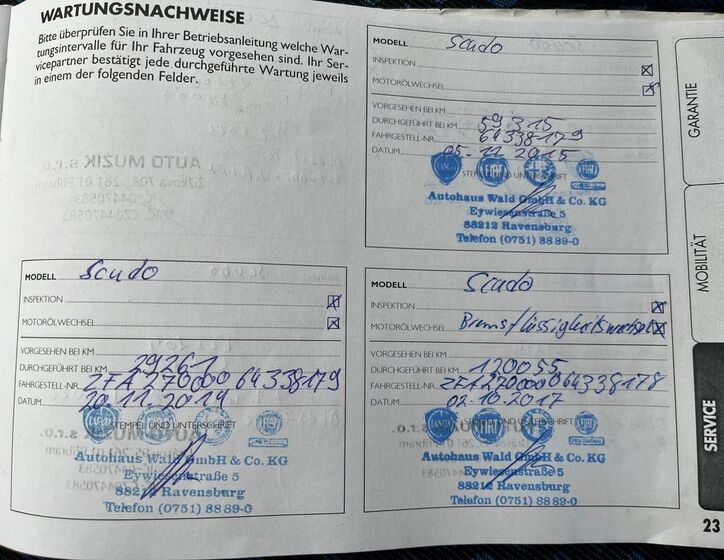 WARTUNGSNACHWEISE
Bitte überprüfen Sie in Ihrer Betriebsanleitung welche War-
tungsintervalle für Ihr Fahrzeug vorgesehen sind. Ihr Ser-
vicepartner bestätigt jede durchgeführte Wartung jeweils
in einem der folgenden Felder.
MODELL Scudo
INSPEKTION
MOTORÖLWECHSEL
VORGESEHEN BEI KM
DURCHGEFÜHRT BEI KM 59 315
FAHRGESTELL-NR. 64338179
DATUM 05.11.2015
STEMPEL UND UNTERSCHRIFT
Autohaus Wald GmbH & Co. KG
Eywiesenstraße 5
88212 Ravensburg
Telefon (0751) 88 89-0
MODELL Scudo
INSPEKTION
MOTORÖLWECHSEL
VORGESEHEN BEI KM
DURCHGEFÜHRT BEI KM 29261
FAHRGESTELL-NR. ZFA27000064338179
DATUM 20.11.2014
STEMPEL UND UNTERSCHRIFT
Autohaus Wald GmbH & Co. KG
Eywiesenstraße 5
88212 Ravensburg
Telefon (0751) 88 89-0
MODELL Scudo
INSPEKTION
MOTORÖLWECHSEL Bremsflüssigkeitswechsel
VORGESEHEN BEI KM
DURCHGEFÜHRT BEI KM 120055
FAHRGESTELL-NR. ZFA27000064338178
DATUM 02.10.2017
STEMPEL UND UNTERSCHRIFT
Autohaus Wald GmbH & Co. KG
Eywiesenstraße 5
88212 Ravensburg
Telefon (0751) 88 89-0
GARANTIE
MOBILITÄT
SERVICE
23